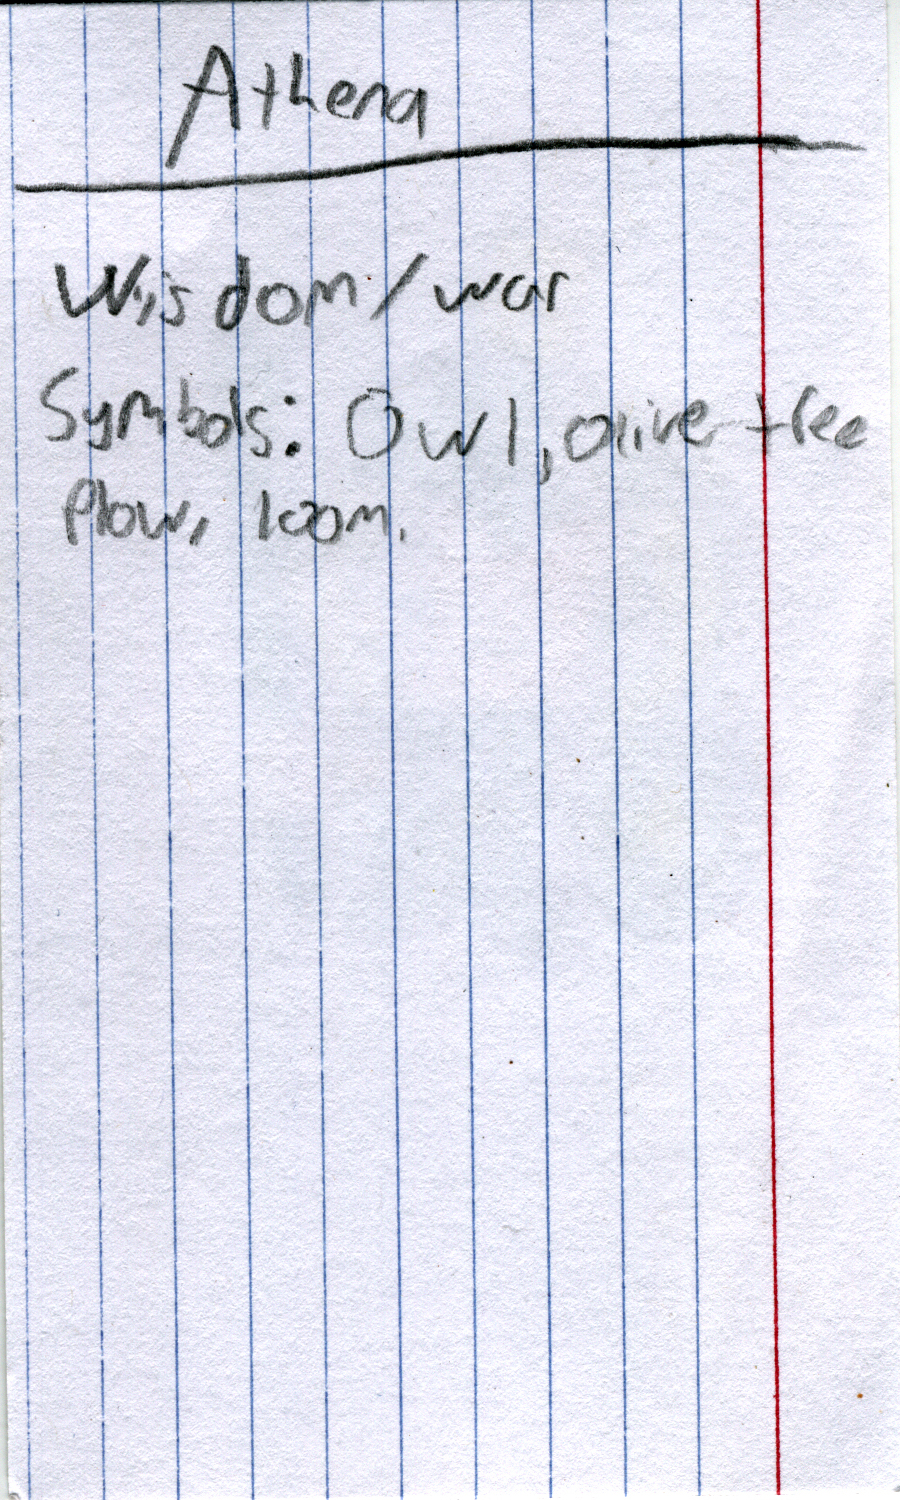 Athena
Wisdom/war
Symbols: Owl, olive tree
Plow, loom.